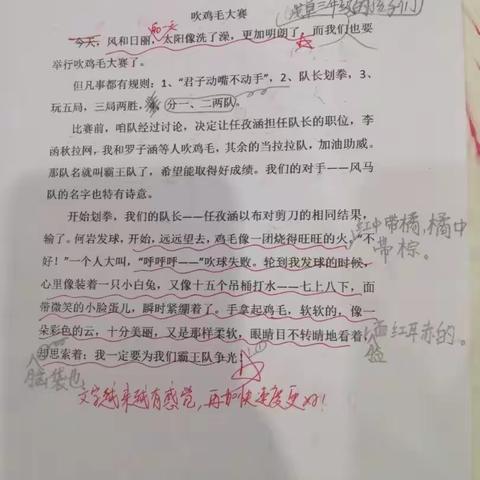 吹鸡毛大赛
今天，风和日丽，太阳像洗了澡，更加明朗了，而我们也要
举行吹鸡毛大赛了。
但凡事都有规则：1、“君子动嘴不动手”，2、队长划拳，3、
玩五局，三局两胜，分一、二两队。
比赛前，咱队经过讨论，决定让任孜涵担任队长的职位，李
函秋拉网，我和罗子涵等人吹鸡毛，其余的当拉拉队，加油助威。
那队名就叫霸王队了，希望能取得好成绩。我们的对手——风马
队的名字也特有诗意。
开始划拳，我们的队长——任孜涵以布对剪刀的相同结果，
输了。何岩发球，开始，远远望去，鸡毛像一团烧得旺旺的火，“不
红中带橘，橘中
带棕。
好！”一个人大叫，“呼呼呼——”吹球失败。轮到我发球的时候，
心里像装着一只小白兔，又像十五个吊桶打水——七上八下，面
带微笑的小脸蛋儿，瞬时紧绷着了。手拿起鸡毛，软软的，像一
朵彩色的云，十分美丽，又是那样柔软，眼睛目不转睛地看着，
面红耳赤的。
思索着：我一定要为我们霸王队争光！
脑袋也
文字越来越有感觉，再加快速度更好！